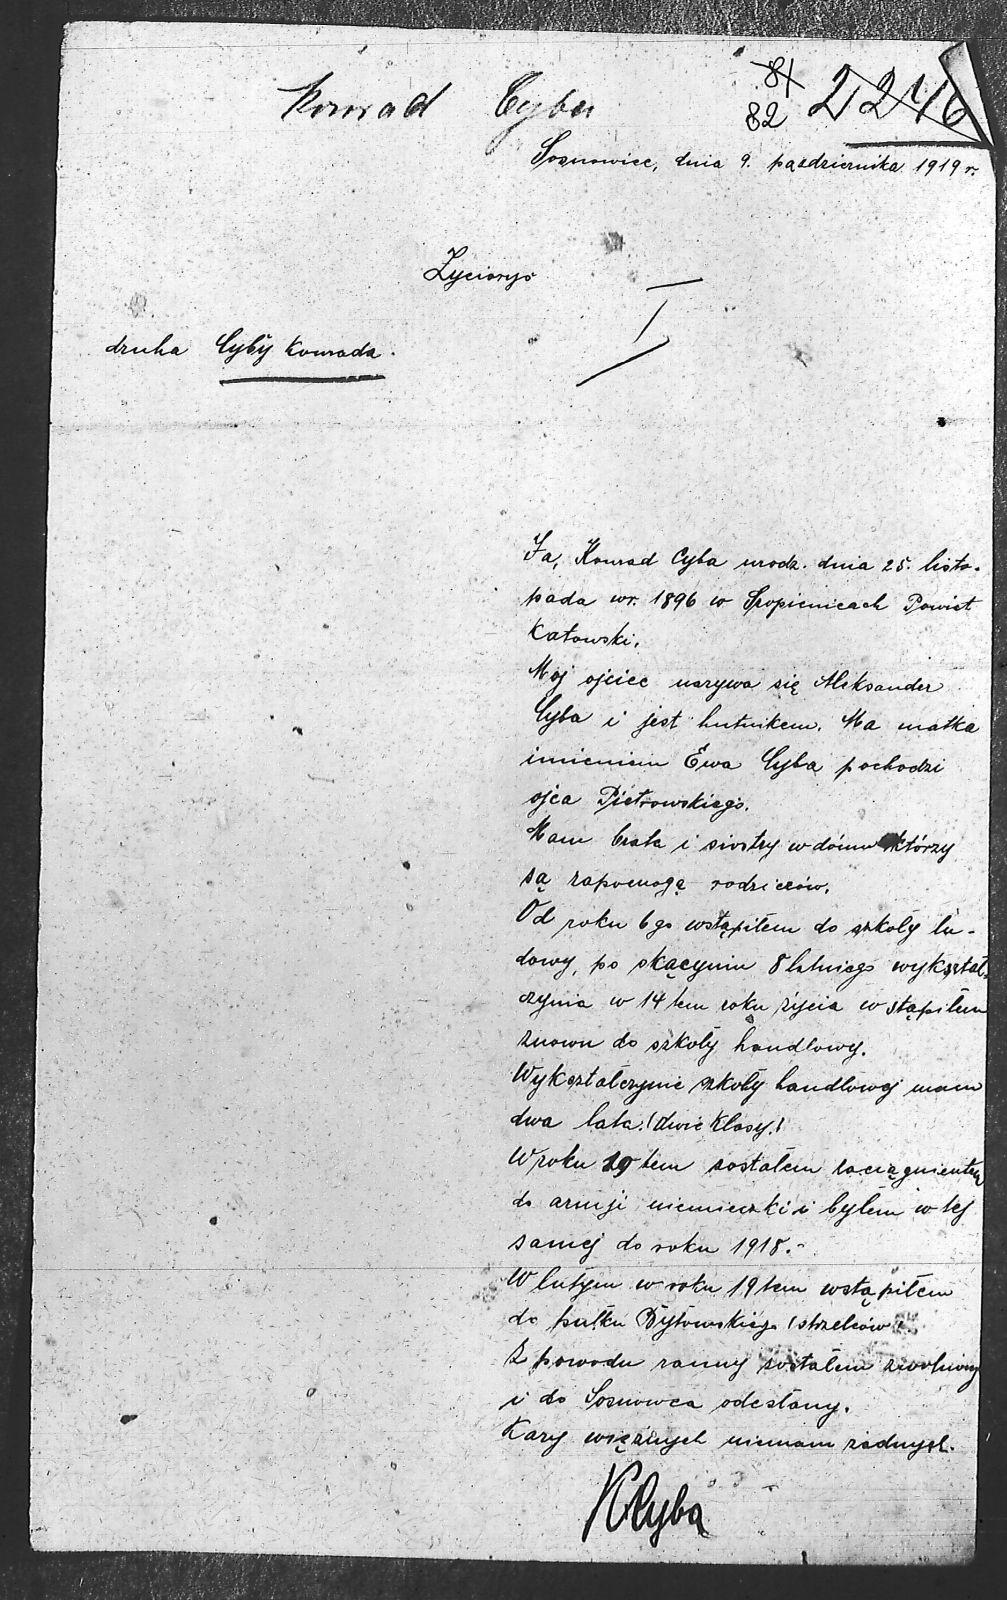 Konrad Cyba
81
82
2246
Sosnowiec, dnia 9. października 1919 r.
Życiorys
I
druha Cyby Konrada.
Ja, Konrad Cyba urodz. dnia 25. listo-
pada wr. 1896 w Szopienicach Powiat
Katowski.
Mój ojciec nazywa się Aleksander
Cyba i jest hutnikem. Ma matka
imieniem Ewa Cyba pochodzi
ojca Pietrowskiego.
Mam brata i siostry w dómu którzy
są zapomogą rodziców.
Od roku 6go wstąpiłem do szkoły lu-
dowy, po skącyniu 8 letniego wykształ-
czynia w 14 tem roku życia wstąpiłem
znowu do szkoły handlowy.
Wykształczynie szkoły handlowej mam
dwa lata. (Dwie Klasy.)
W roku 19 tem zostałem zaciągnientem
do armji niemieczki i byłem w tej
samej do roku 1918.-
W lutym w roku 19 tem wstąpiłem
do pułku Bytowskiego (strzelców)
Z powodu ranny zostałem zwolniony
i do Sosnowca odesłany.
Kary więźnych niemam żadnych.
KCyba